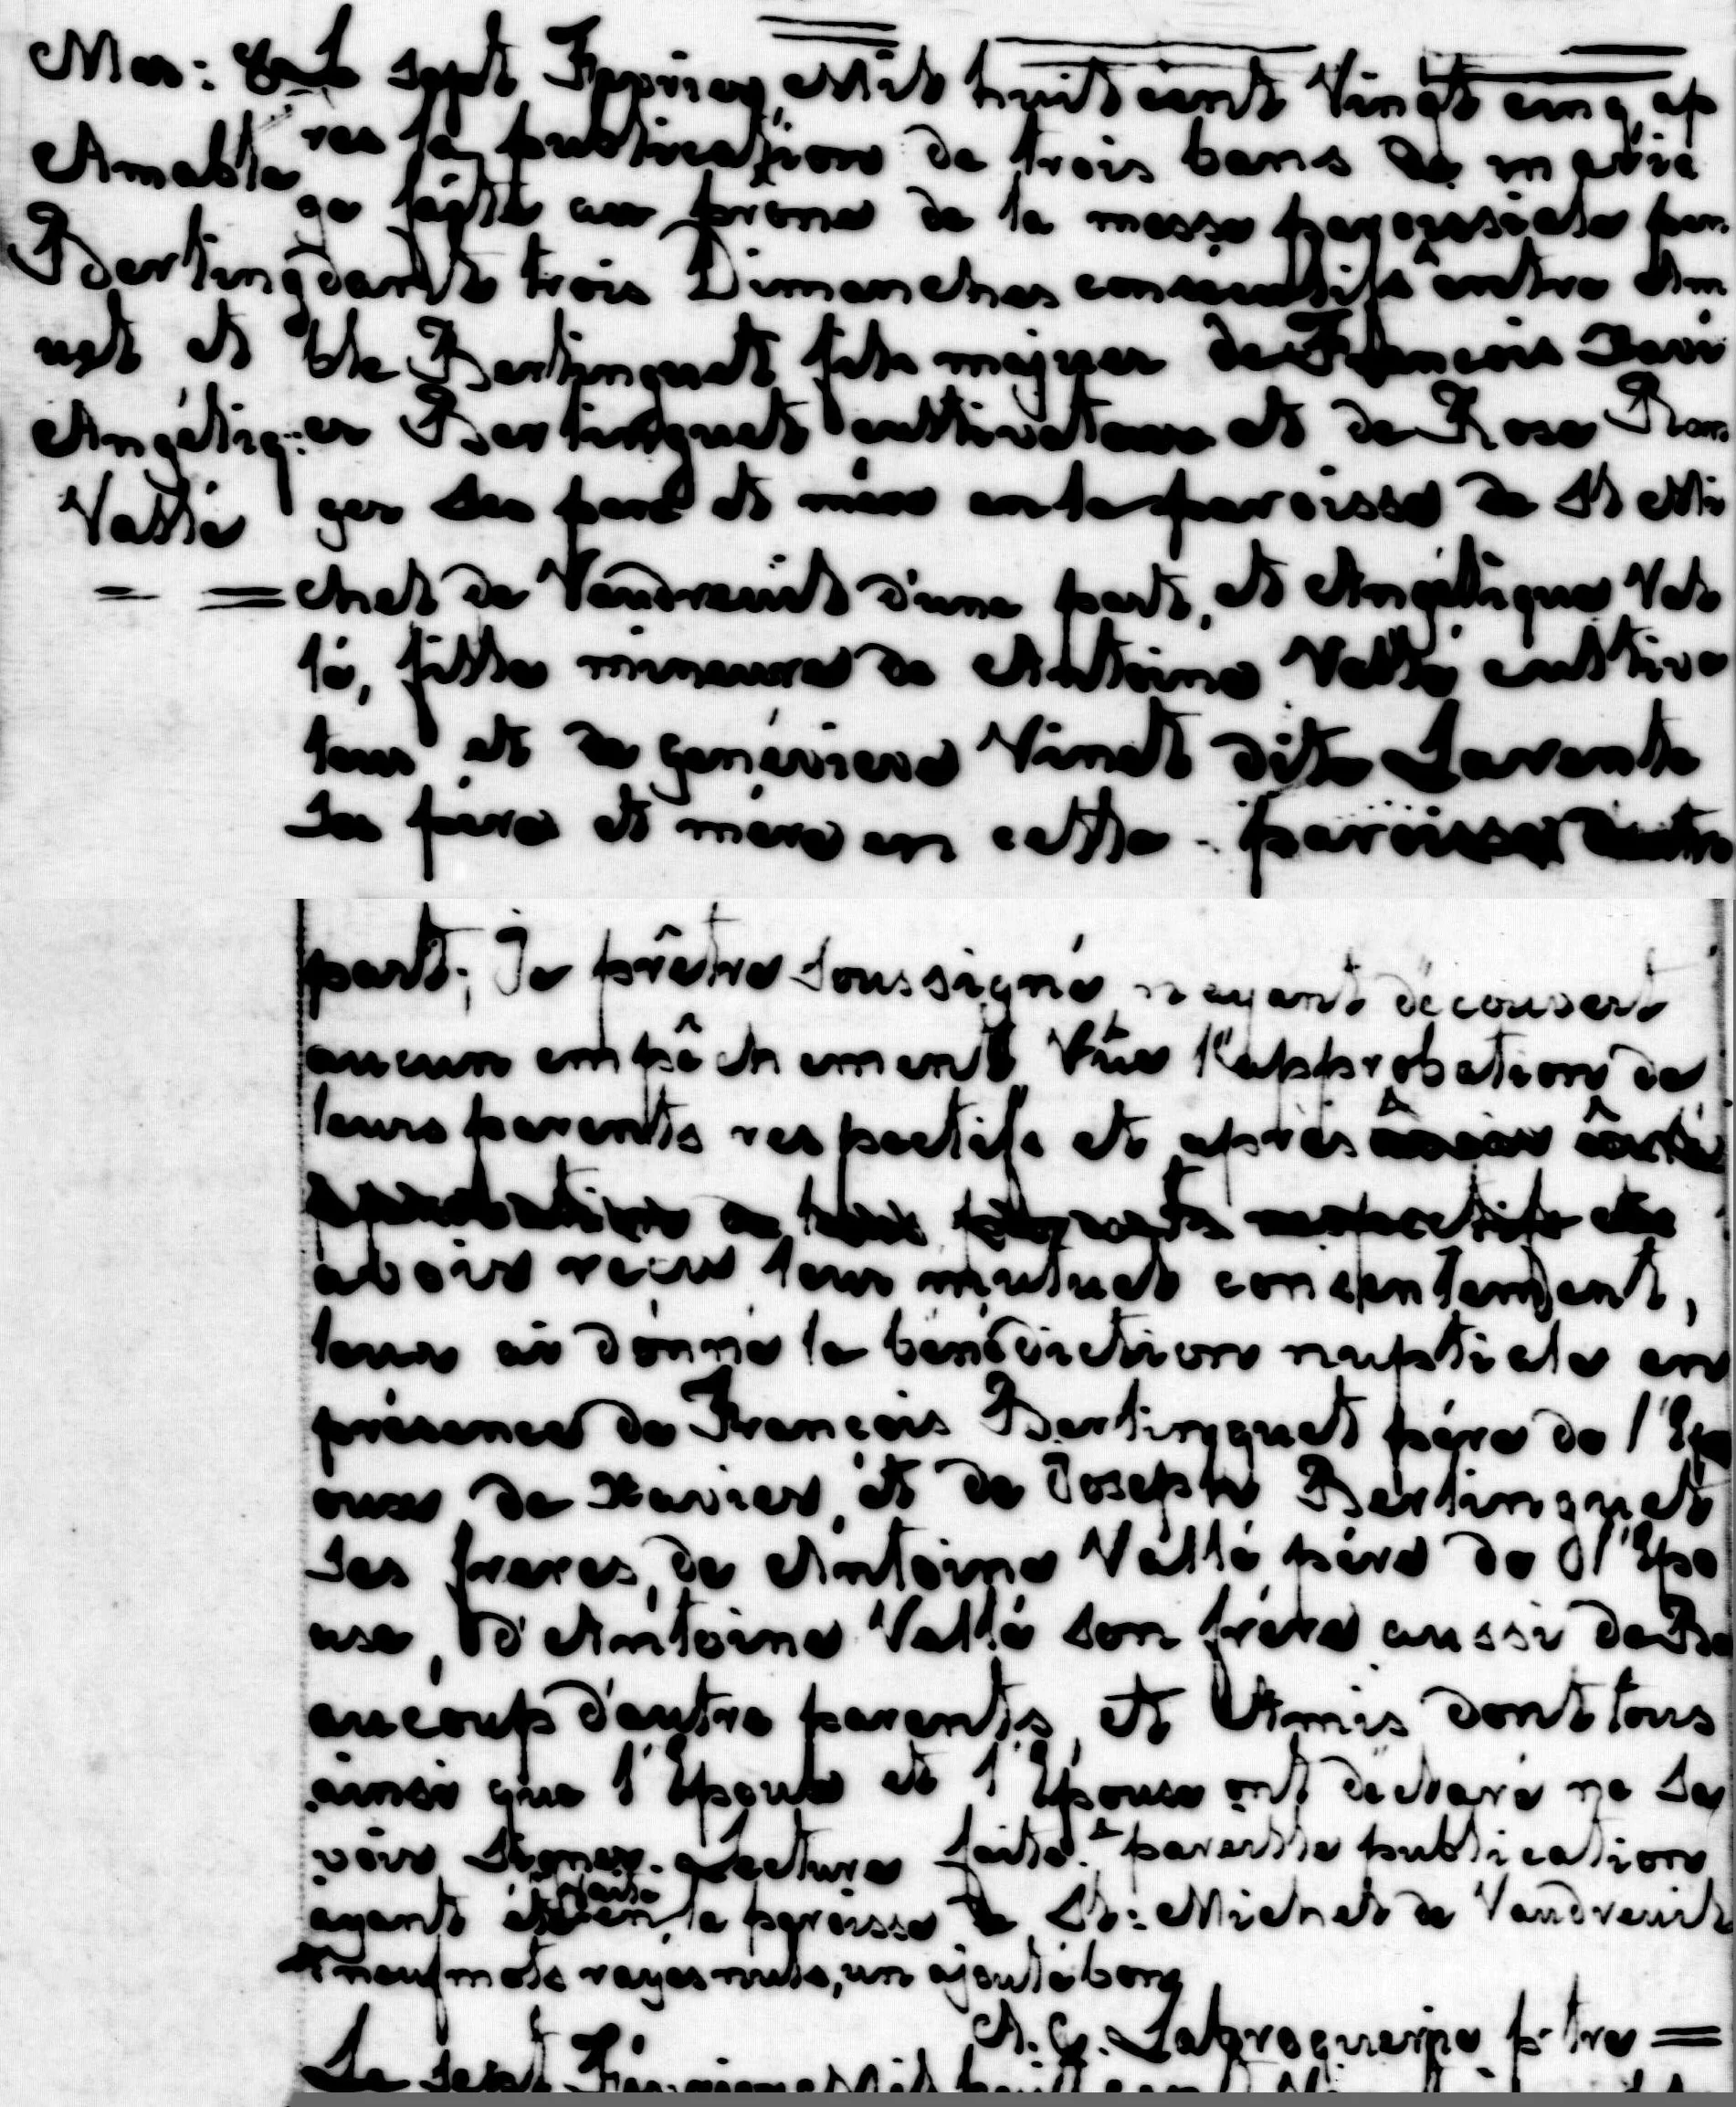 Mar: 8 Le sept Fevrier, Mil huit cent Vingt cinq, ap
Amable rès la publication de trois bans de maria
ge faite au prône de la messe paroissiale pen
Bertingdant trois Dimanches consécutifs entre Am
uet et ble Bertinguet fils majeur de François Xavi
Angéliq: er Bertinguet cultivateur et de Rose Ran
Vallé ger ses père et mère en la paroisse de St Mi
chel de Vaudreuil d'une part, et Angélique Val
lé, fille mineure de Antoine Vallé cultiva
teur et de genévieve Vinet dite Larente
Ses père et mère en cette paroisse d'autre
part; Je prêtre Soussigné, n'ayant découvert
aucun empêchement Vûe l'approbation de
leurs parents respectifs et après
avoir reçu leur mutuel consentement,
leur ai donné la bénédiction nuptiale en
présence de François Bertingguet père de l'Ep
oux de Xavier, et de Joseph Bertinguet
Ses freres, de Antoine Vallé père de l'Epo
use, d'Antoine Vallé son frère aussi de Be
aucoup d'autre parents, et Amis dont tous
ainsi que l'Epoux et l'Epouse ont déclaré ne Sa
voir Signer. Lecture faite. pareille publication
ayant été faite en la paroisse de St: Michel de Vaudreuil
neuf mots rayés nuls, un ajouté bon
A. C. Labroquerie p-tre =
Le Sept Fevrier Mil huit cent